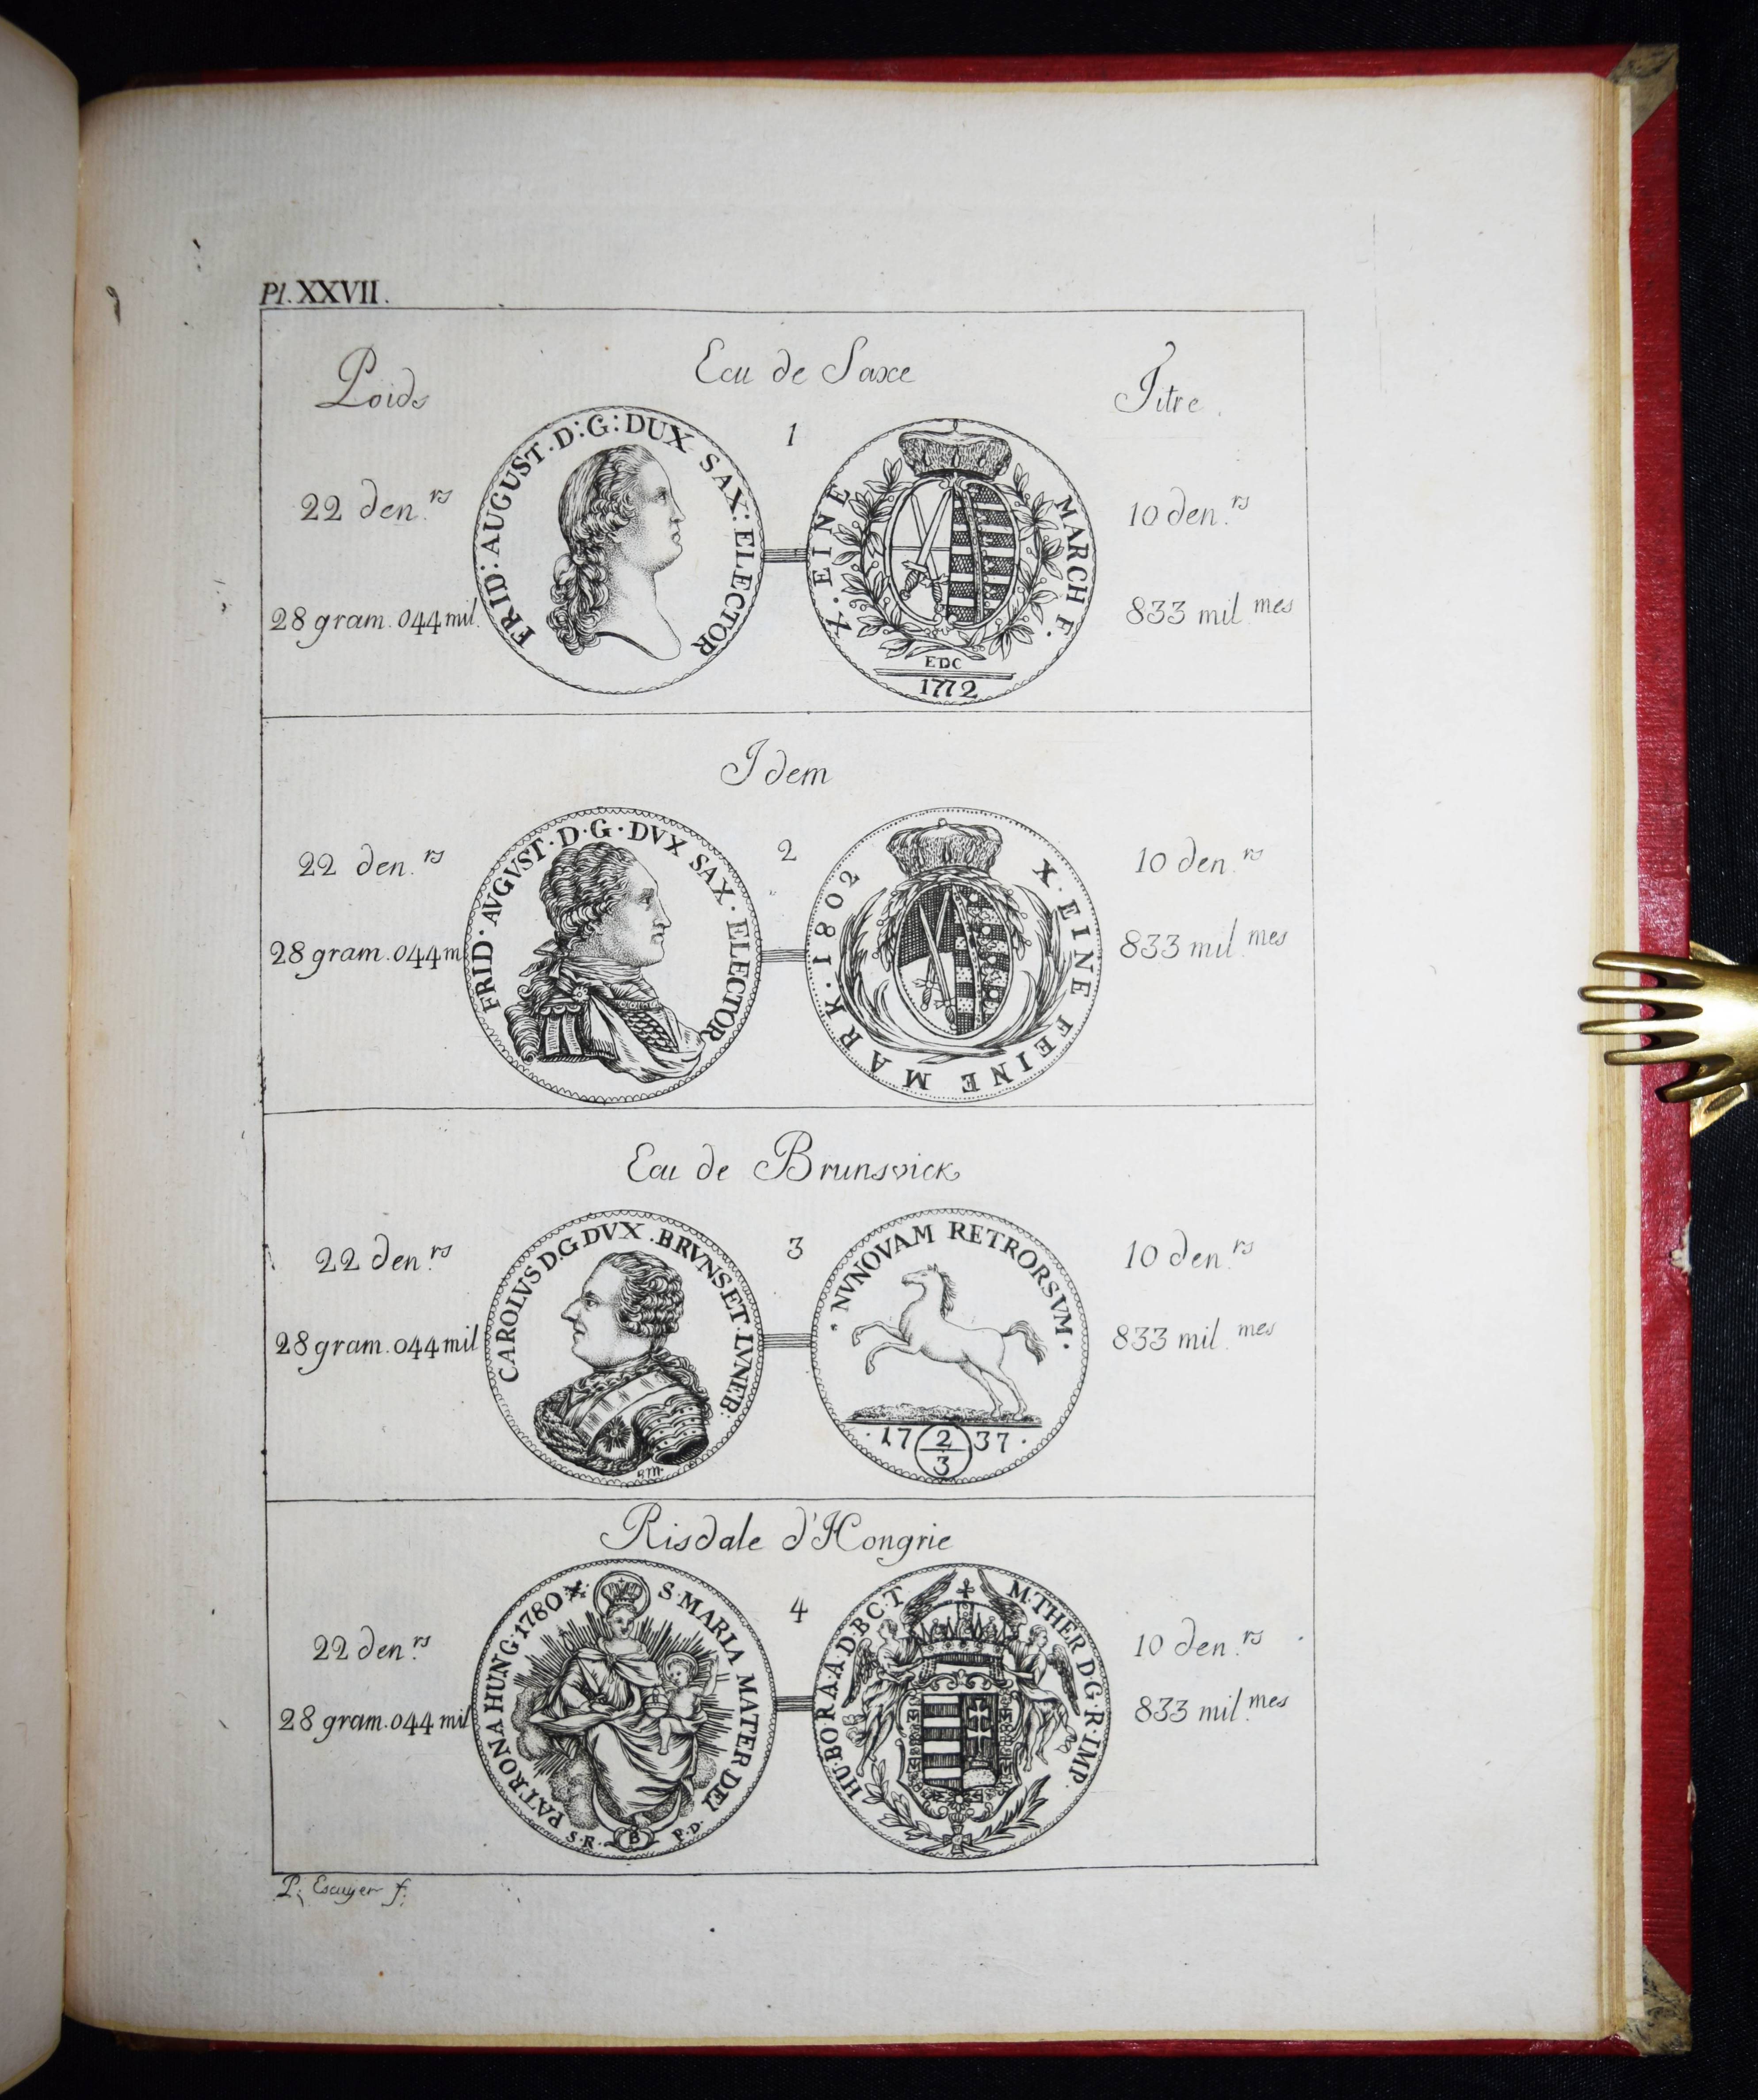 Pl. XXVII.
Poids
Ecu de Saxe
Titre.
1
22 den.rs
FRID: AUGUST. D: G: DUX SAX: ELECTOR
X. EINE MARCH F.
EDC
1772
10 den.rs
28 gram. 044 mil.
833 mil.mes
Idem
2
22 den.rs
FRID. AVGVST. D. G. DVX SAX. ELECTOR
X. EINE FEINE MARK. 1802
10 den.rs
28 gram. 044 m
833 mil.mes
Ecu de Brunsvick
3
22 den.rs
CAROLVS D.G. DVX. BRVNS. ET. LVNEB:
NVNQVAM RETRORSVM.
.17 2/3 37.
10 den.rs
28 gram. 044 mil
833 mil.mes
Risdale d'Hongrie
4
22 den.rs
S. MARIA MATER DEI PATRONA HUNG. 1780
S. R. B P. D.
M. THER. D. G. R. IMP. HU. BO. R. A. A. D. B. C. T
10 den.rs
28 gram. 044 mil
833 mil.mes
P. Escuyer f.